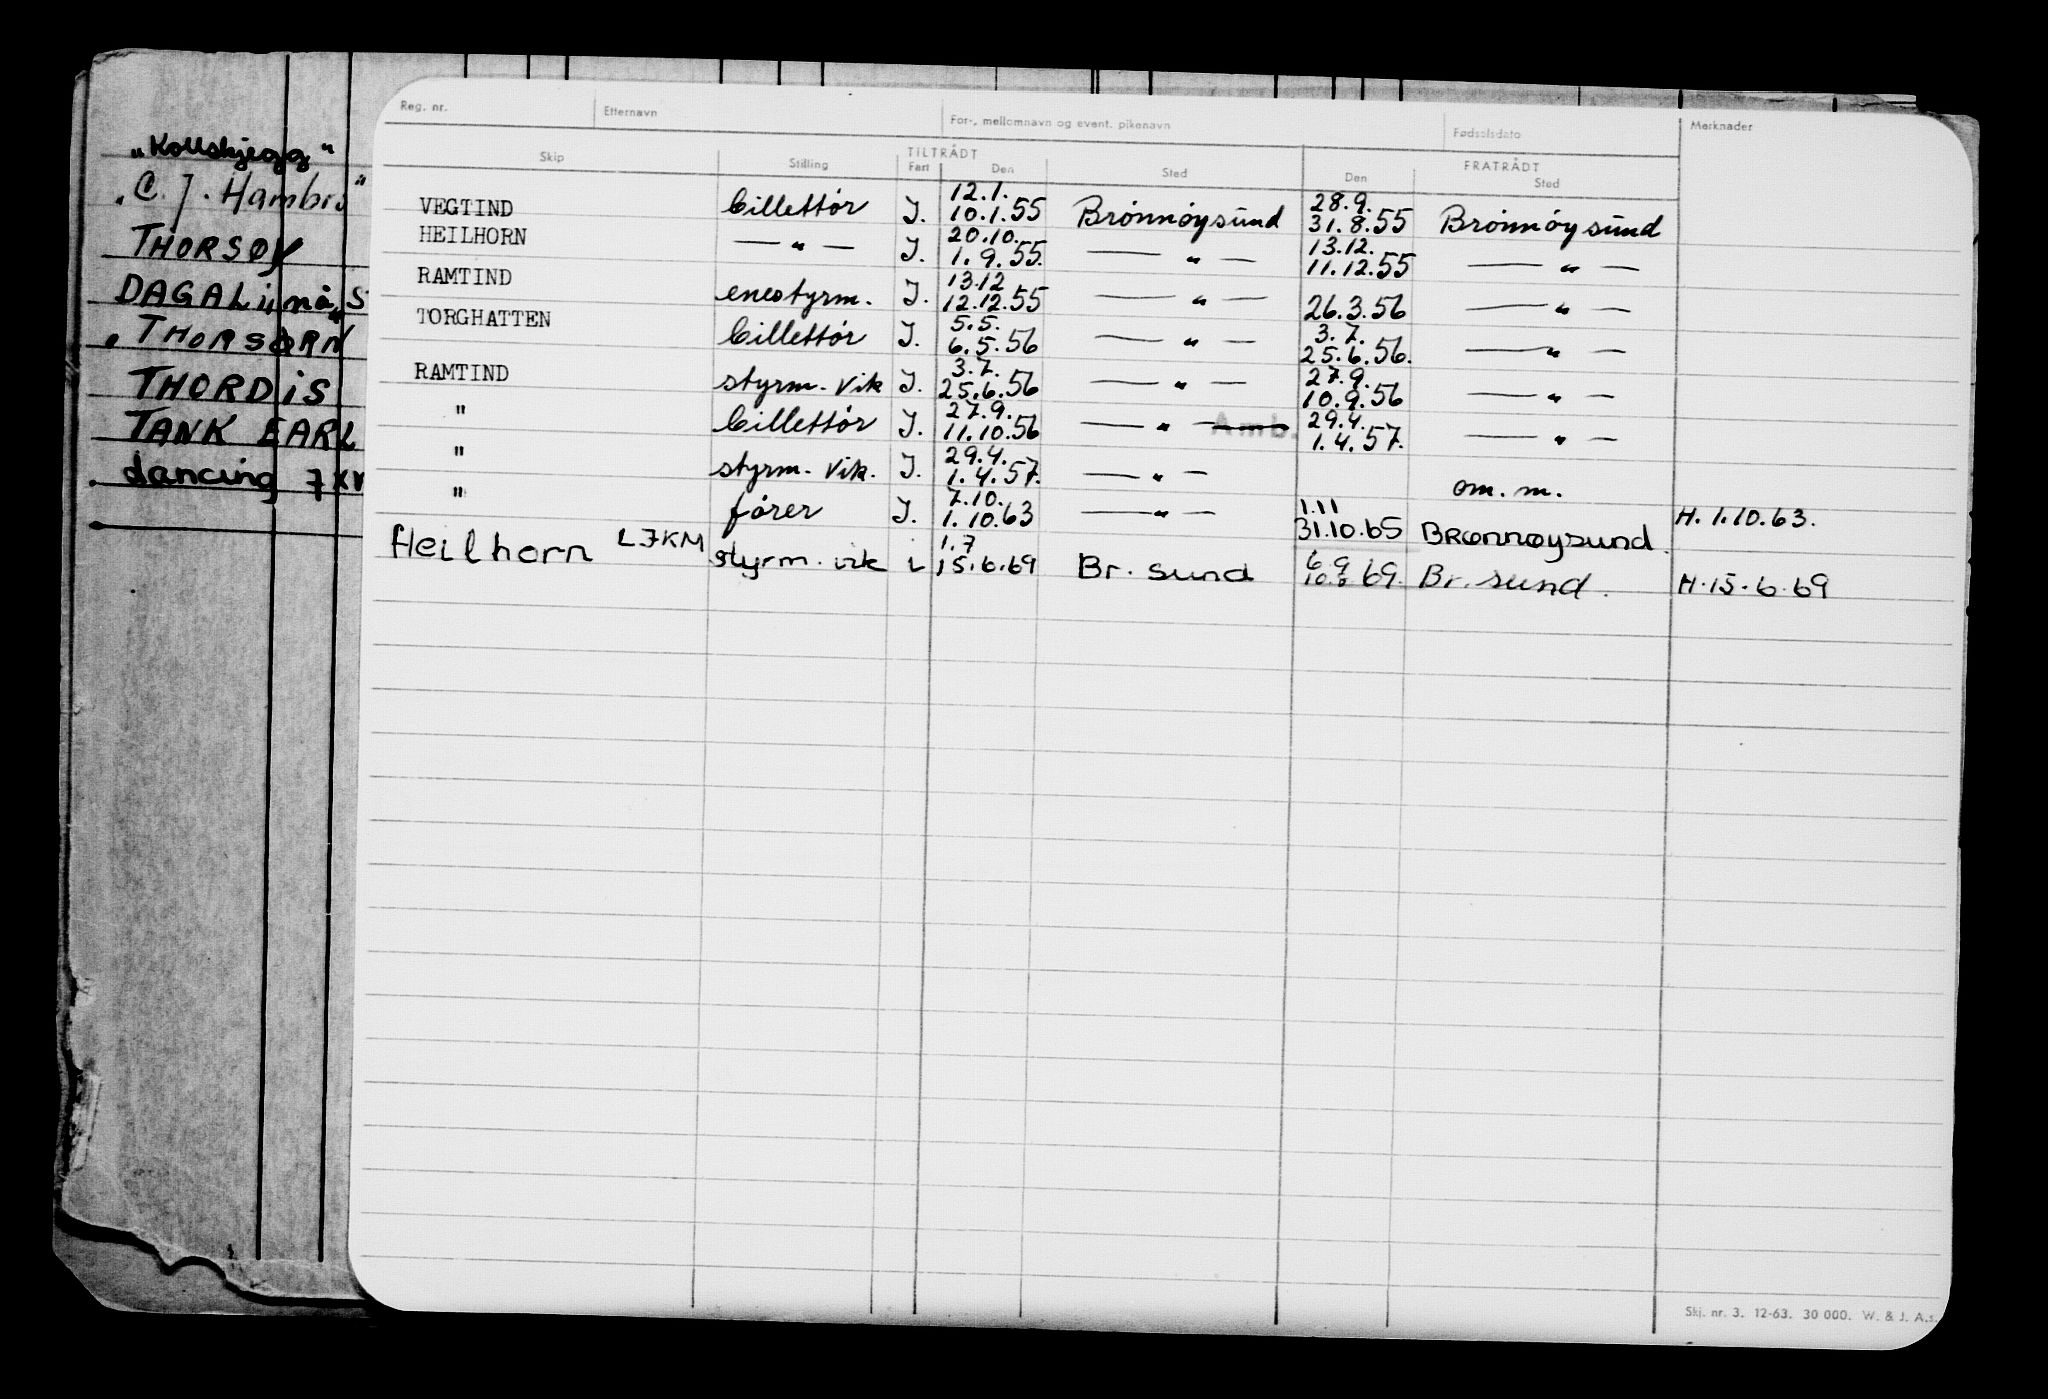 „Kollskjegg"
„C. J. Hambro"
THORSØY
DAGALi
„THORSØRN
THORDiS
TANK EARL
dancing
Reg. nr. Etternavn For-, mellomnavn og event. pikenavn Fødselsdato Merknader
Skip Stilling TILTRÅDT Fart Den Sted FRATRÅDT Den Sted
VEGTIND billettør J. 12.1. 10.1.55 Brønnøysund 28.9. 31.8.55 Brønnøysund
HEILHORN — " — J. 20.10. 1.9.55. — " — 13.12. 11.12.55 — " —
RAMTIND enestyrm. J. 13.12 12.12.55 — " — 26.3.56 — " —
TORGHATTEN billettør J. 5.5. 6.5.56 — " — 3.7. 25.6.56. — " —
RAMTIND styrm. vik J. 3.7. 25.6.56 — " — 27.9. 10.9.56 — " —
" billettør J. 27.9. 11.10.56 — " — Amb. 29.4. 1.4.57. — " —
" styrm. vik. J. 29.4. 1.4.57. — " — om. m.
" fører J. 7.10. 1.10.63 — " — 1.11 31.10.65 Brønnøysund. H. 1.10.63.
Heilhorn LJKM styrm. vik i 1.7 15.6.69 Br. sund 6.9 10.8 69. Br. sund. H. 15.6.69
Skj. nr. 3. 12-63. 30 000. W. & J. A.s.